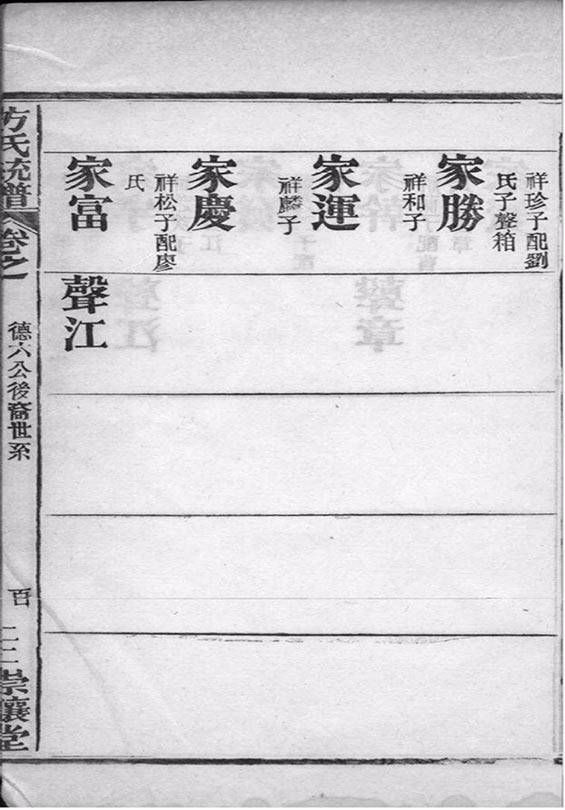 祥珍子配劉
氏子聲箱
家勝
祥和子
家運
祥麟子
家慶
祥松子配廖
氏
家富
聲江
方氏統譜
卷之
德六公後裔世系
百
崇讓堂